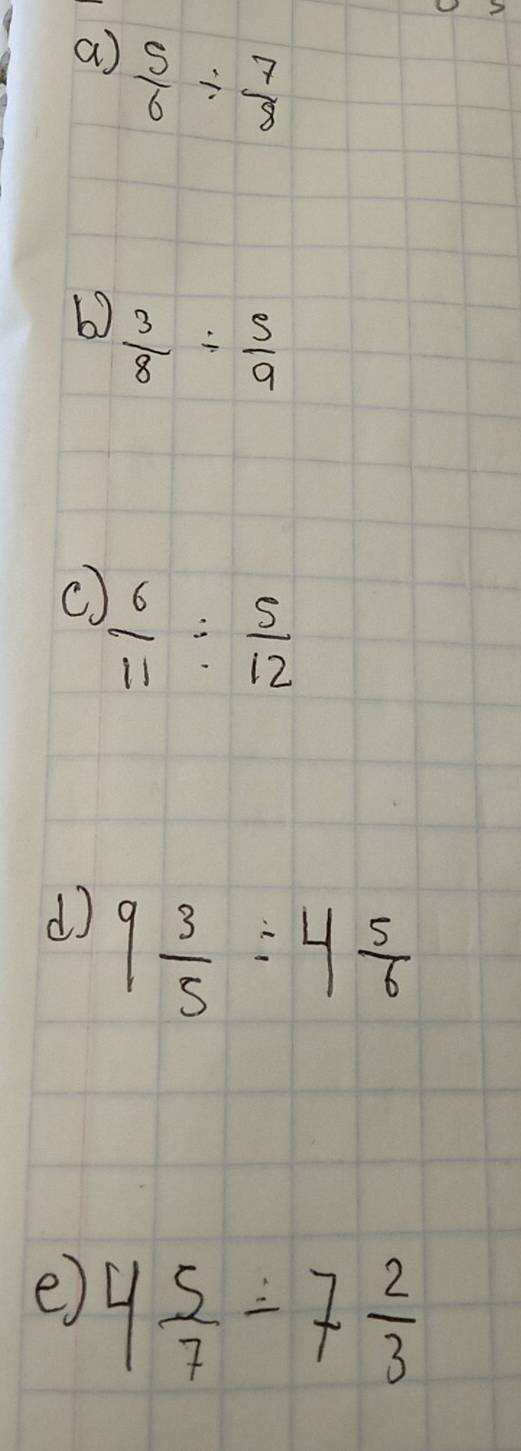 a) 5/6 ÷ 7/8
b) 3/8 ÷ 5/9
c) 6/11 ÷ 5/12
d) 9 3/5 ÷ 4 5/6
e) 4 5/7 ÷ 7 2/3